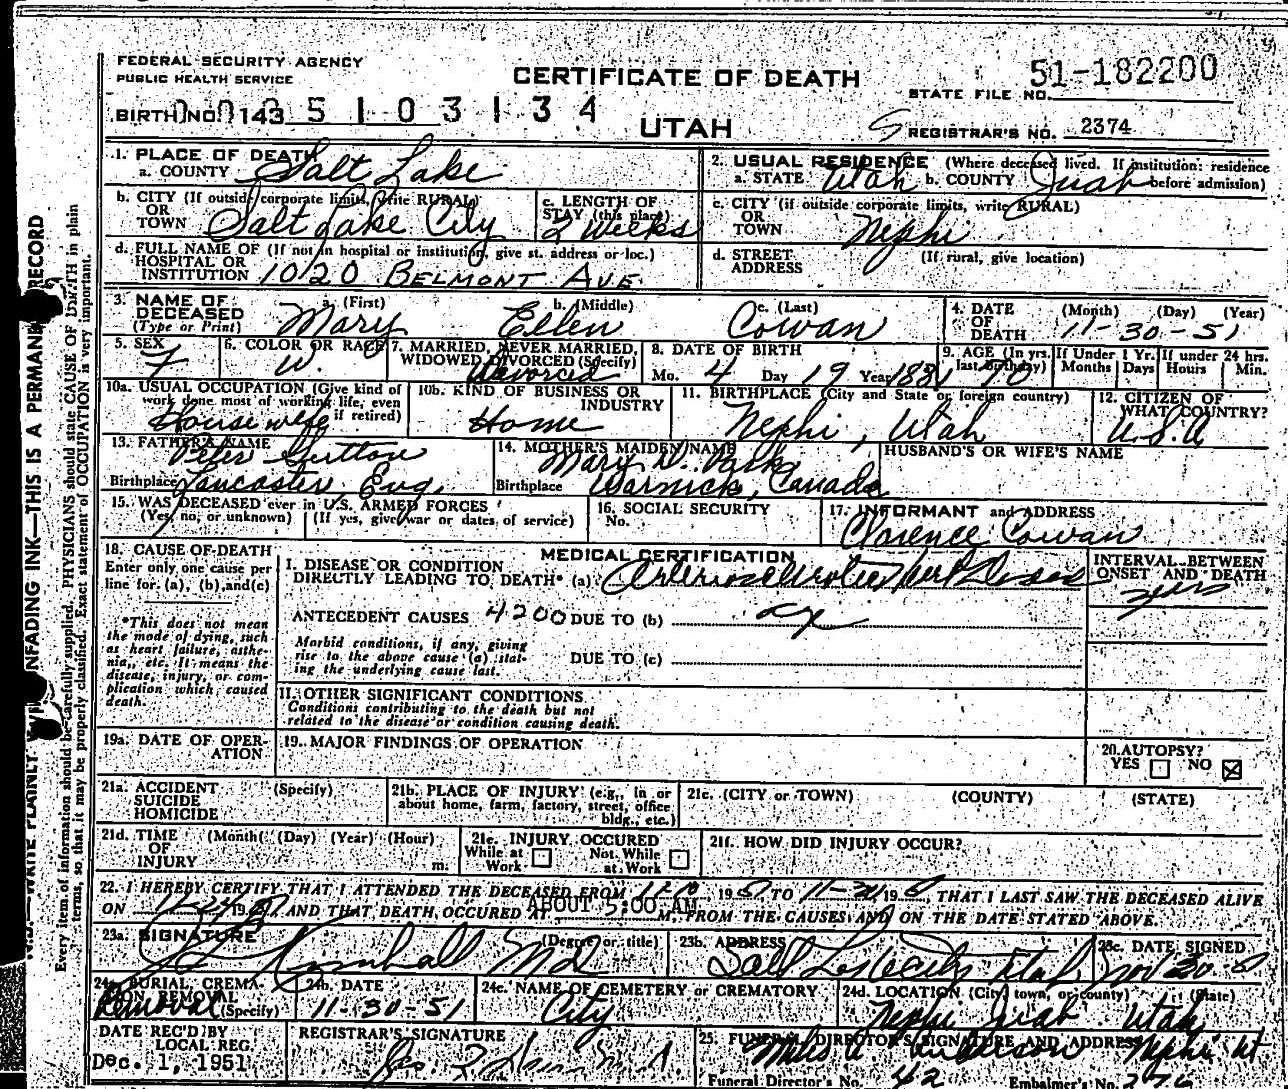 FEDERAL SECURITY AGENCY
PUBLIC HEALTH SERVICE
CERTIFICATE OF DEATH
STATE FILE NO. 51-182200
BIRTH NO. 143 5 1 0 3 1 3 4
UTAH
REGISTRAR'S NO. 2374
1. PLACE OF DEATH
a. COUNTY Salt Lake
2. USUAL RESIDENCE (Where deceased lived. If institution: residence before admission)
a. STATE Utah b. COUNTY Juab
b. CITY (If outside corporate limits, write RURAL) OR TOWN Salt Lake City
c. LENGTH OF STAY (this place) 2 Weeks
c. CITY (if outside corporate limits, write RURAL) OR TOWN Nephi
d. FULL NAME OF (If not in hospital or institution, give st. address or loc.) HOSPITAL OR INSTITUTION 1020 BELMONT AVE
d. STREET ADDRESS (If rural, give location)
3. NAME OF DECEASED (Type or Print)
a. (First) Mary b. (Middle) Ellen c. (Last) Cowan
4. DATE OF DEATH (Month) (Day) (Year) 11-30-51
5. SEX F
6. COLOR OR RACE W.
7. MARRIED, NEVER MARRIED, WIDOWED, DIVORCED (Specify) Divorced
8. DATE OF BIRTH Mo. 4 Day 19 Year 1881
9. AGE (In yrs. last birthday) 70
If Under 1 Yr. Months Days
If under 24 hrs. Hours Min.
10a. USUAL OCCUPATION (Give kind of work done most of working life, even if retired) Housewife
10b. KIND OF BUSINESS OR INDUSTRY Home
11. BIRTHPLACE (City and State or foreign country) Nephi, Utah
12. CITIZEN OF WHAT COUNTRY? U.S.A
13. FATHER'S NAME Peter Sutton
Birthplace Lancaster Eng.
14. MOTHER'S MAIDEN NAME Mary D.
Birthplace Warwick, Canada
HUSBAND'S OR WIFE'S NAME
15. WAS DECEASED ever in U.S. ARMED FORCES
(Yes, no, or unknown) (If yes, give war or dates of service)
16. SOCIAL SECURITY No.
17. INFORMANT and ADDRESS
Clarence Cowan
18. CAUSE OF DEATH
Enter only one cause per line for (a), (b), and (c)
MEDICAL CERTIFICATION
I. DISEASE OR CONDITION
DIRECTLY LEADING TO DEATH* (a) Arteriosclerotic heart disease
INTERVAL BETWEEN ONSET AND DEATH
*This does not mean the mode of dying, such as heart failure, asthenia, etc. It means the disease, injury, or complication which caused death.
ANTECEDENT CAUSES 4200 DUE TO (b)
Morbid conditions, if any, giving rise to the above cause (a) stating the underlying cause last.
DUE TO (c)
II. OTHER SIGNIFICANT CONDITIONS
Conditions contributing to the death but not related to the disease or condition causing death.
19a. DATE OF OPERATION
19. MAJOR FINDINGS OF OPERATION
20. AUTOPSY?
YES NO
21a. ACCIDENT SUICIDE HOMICIDE (Specify)
21b. PLACE OF INJURY (e.g., in or about home, farm, factory, street, office bldg., etc.)
21c. (CITY or TOWN) (COUNTY) (STATE)
21d. TIME OF INJURY (Month) (Day) (Year) (Hour) m.
21e. INJURY OCCURED
While at Work Not While at Work
21f. HOW DID INJURY OCCUR?
22. I HEREBY CERTIFY THAT I ATTENDED THE DECEASED FROM 19 TO 19 , THAT I LAST SAW THE DECEASED ALIVE
ON 19 AND THAT DEATH OCCURED AT ABOUT 5:00 AM M. FROM THE CAUSES AND ON THE DATE STATED ABOVE.
23a. SIGNATURE (Degree or title) MD
23b. ADDRESS Salt Lake City Utah
23c. DATE SIGNED Nov 30
24a. BURIAL, CREMATION, REMOVAL (Specify) Removal
24b. DATE 11-30-51
24c. NAME OF CEMETERY or CREMATORY City
24d. LOCATION (City, town, or county) (State) Nephi Juab Utah
DATE REC'D BY LOCAL REG. Dec. 1, 1951
REGISTRAR'S SIGNATURE
25. FUNERAL DIRECTOR'S SIGNATURE AND ADDRESS Miles A. Anderson Nephi Ut
Funeral Director's No. 42 Embalmer's No.
WRITE PLAINLY UNFADING INK—THIS IS A PERMANENT RECORD
Every item of information should be carefully supplied. PHYSICIANS should state CAUSE OF DEATH in plain
terms, so that it may be properly classified. Exact statement of OCCUPATION is very important.